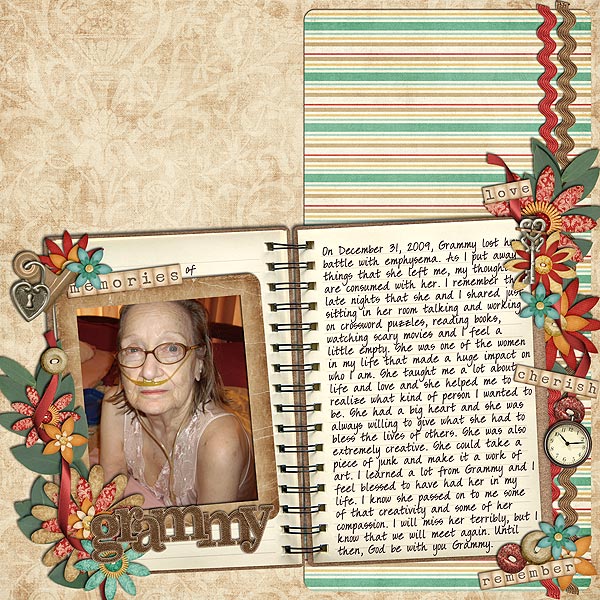 love
memories of
grammy
On December 31, 2009, Grammy lost her
battle with emphysema. As I put away
things that she left me, my thoughts
are consumed with her. I remember the
late nights that she and I shared just
sitting in her room talking and working
on crossword puzzles, reading books,
watching scary movies and I feel a
little empty. She was one of the women
in my life that made a huge impact on
who I am. She taught me a lot about
life and love and she helped me to
realize what kind of person I wanted to
be. She had a big heart and she was
always willing to give what she had to
bless the lives of others. She was also
extremely creative. She could take a
piece of junk and make it a work of
art. I learned a lot from Grammy and I
feel blessed to have had her in my
life. I know she passed on to me some
of that creativity and some of her
compassion. I will miss her terribly, but I
know that we will meet again. Until
then, God be with you Grammy.
cherish
remember